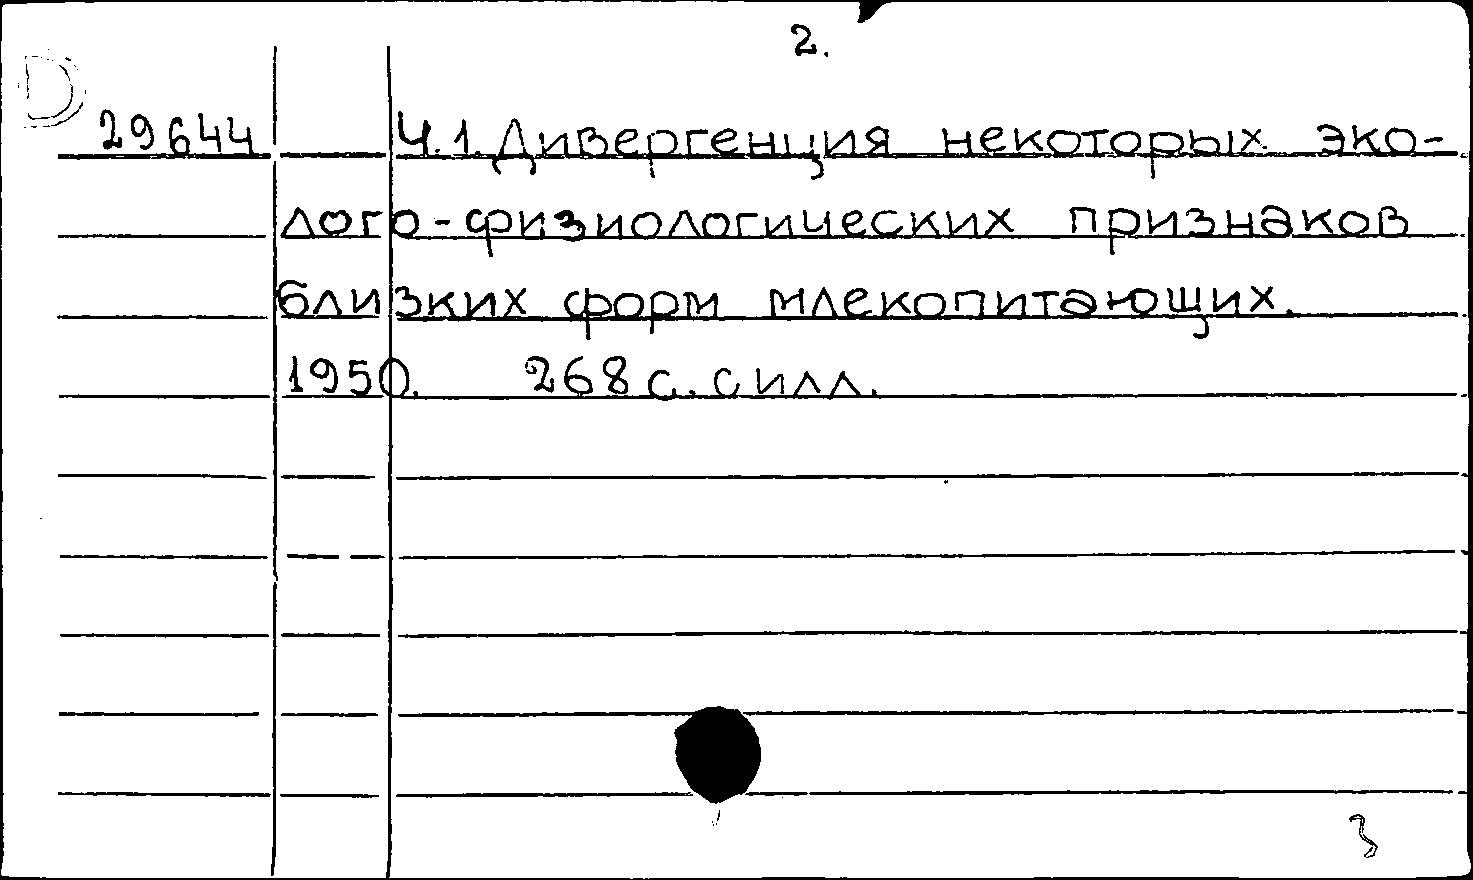 2.
29644 Ч.1. Дивергенция некоторых эко-
лого-физиологических признаков
близких форм млекопитающих.
1950. 268 с. с илл.
3